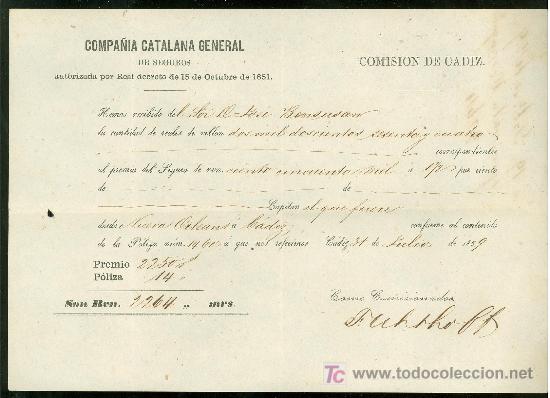 COMPAÑIA CATALANA GENERAL
DE SEGUROS
autorizada por Real decreto de 15 de Octubre de 1851.
COMISION DE CADIZ.
Hemos recibido del Sor. D. José Bensusan
la cantidad de reales de vellon dos mil doscientos sesenta y cuatro
correspondientes
al premio del Seguro de rvn. ciento cincuenta mil á 1½ por ciento
de de
Capitan el que fuere
desde Nueva Orleans á Cádiz conforme al contenido
de la Póliza núm. 1460 á que nos referimos. Cádiz 31 de Julio de 1859
Premio 2250
Póliza 14
Son Rvn. 2264 „ mrs.
Como Comisionados
TC www.todocoleccion.net